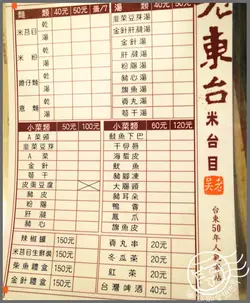 麵類 40元 50元
湯類 40元 50元
米苔目 乾 湯
米粉 乾 湯
意麵 乾 湯
韭菜豆芽湯
金針肝膶湯
金針湯
肝膶湯
粉腸湯
豬心湯
魷魚湯
貢丸湯
豆腐湯
小菜類 50元 100元
小菜類 60元 120元
A菜
韭菜豆芽
A菜頭
金針
豆腐
皮蛋豆腐
豬皮
粉腸
肝膶
豬心
旗魚下巴
海蜇皮
魷魚
豬腳凍
大腸頭
豬耳朵
鴨賞
鳳爪
旗魚皮
辣椒罐 150元
米苔目生鮮裝 150元
柴魚禮盒 150元
金針禮盒 150元
貢丸串 20元
冬瓜茶 20元
紅茶 20元
台灣啤酒 40元
東台
米台目
老吳
台東50年人氣老店